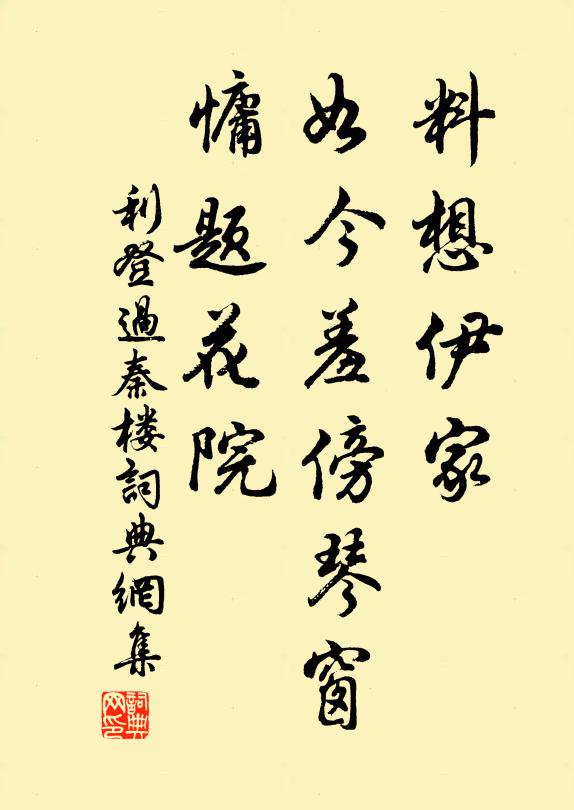 料想伊家
如今羞傍琴窗
慵题花院
利登過秦楼詞典網集
詞典网印